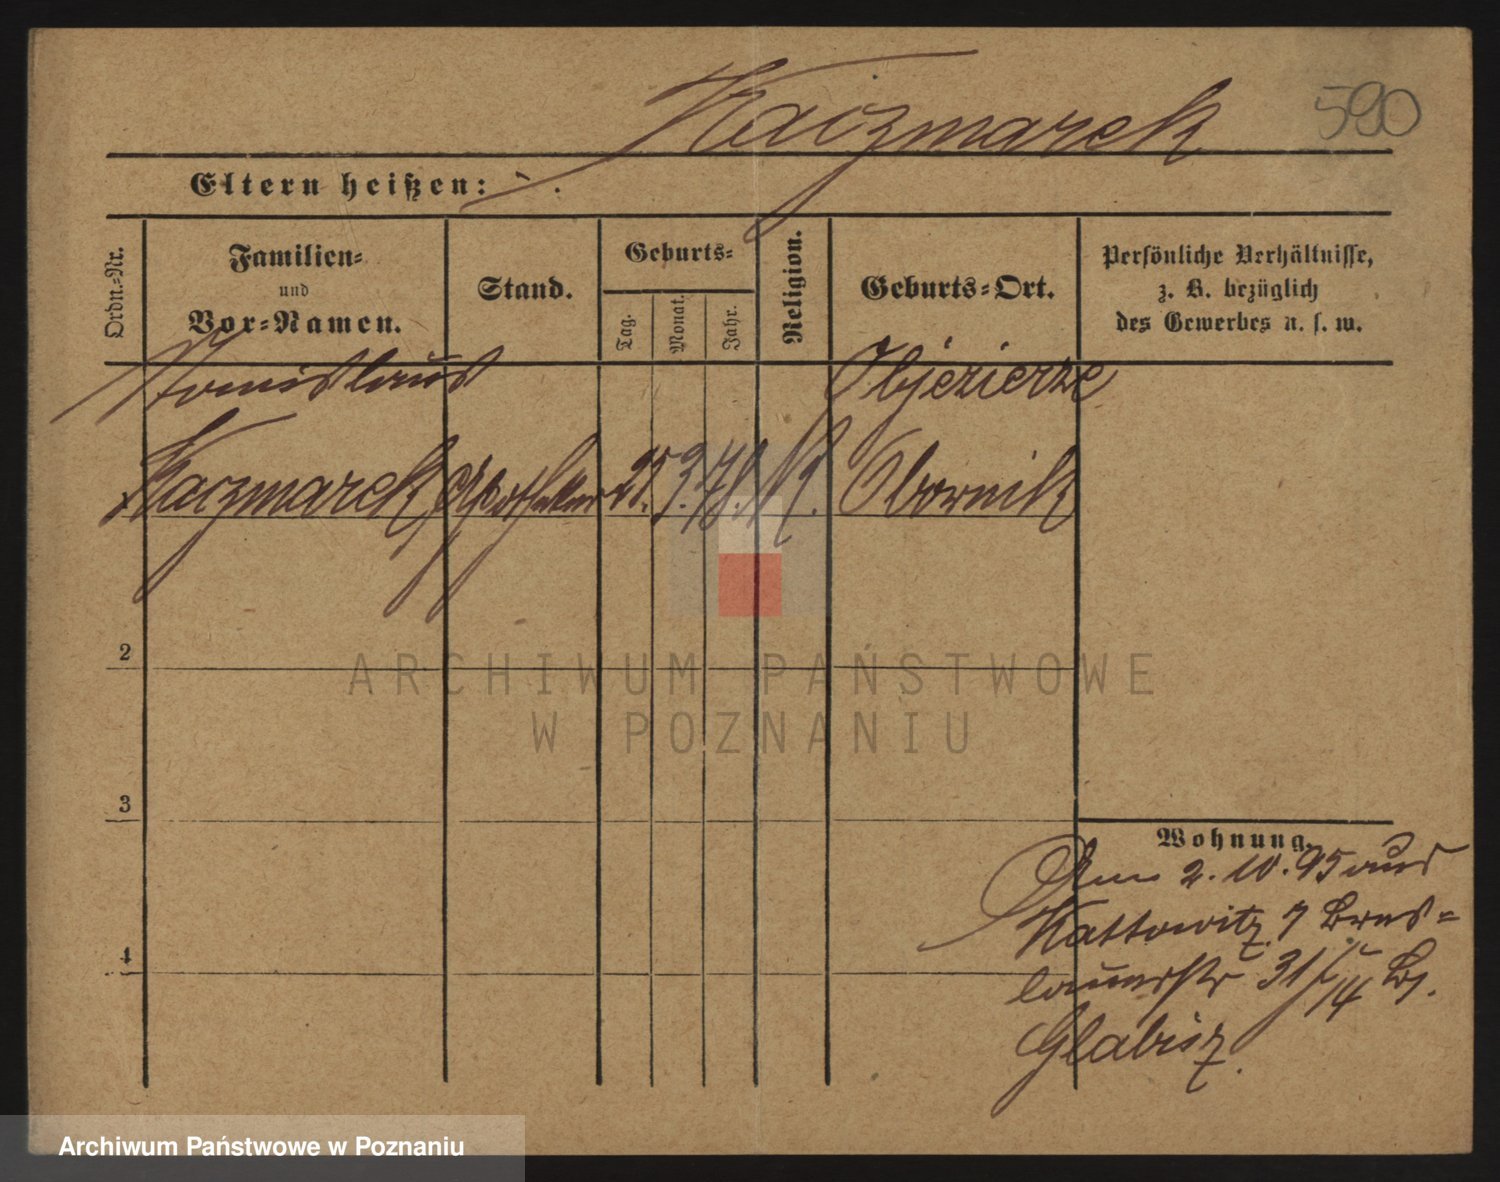 Kaczmarek
590
Eltern heißen:
Ordn.-Nr.
Familien-
und
Vor-Namen.
Stand.
Geburts-
Tag.
Monat.
Jahr.
Religion.
Geburts-Ort.
Persönliche Verhältnisse,
z. B. bezüglich
des Gewerbes u. s. w.
Stanislaus
Kaczmarek
Apotheker
25. 3. 78.
K.
Objezierze
Obornik
2
3
4
Wohnung.
2. 10. 95 aus
Kattowitz Bres-
lauerstr 31
Glabisz.
ARCHIWUM PAŃSTWOWE
W POZNANIU
Archiwum Państwowe w Poznaniu